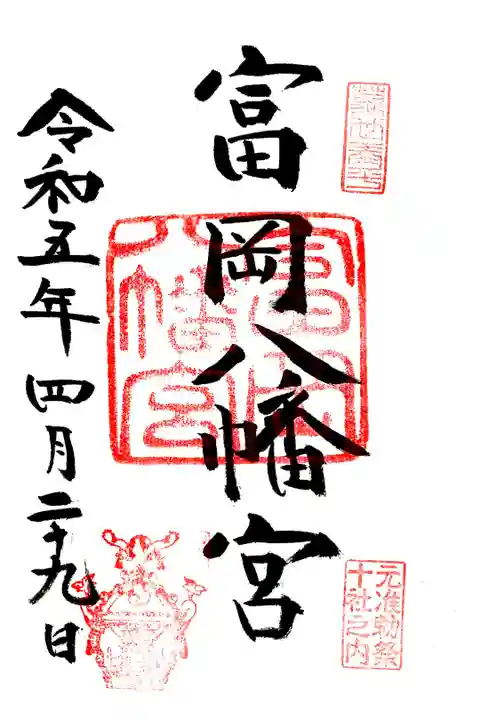 富岡八幡宮
元准勅祭
十社之内
富岡
八幡宮
令和五年四月二十九日